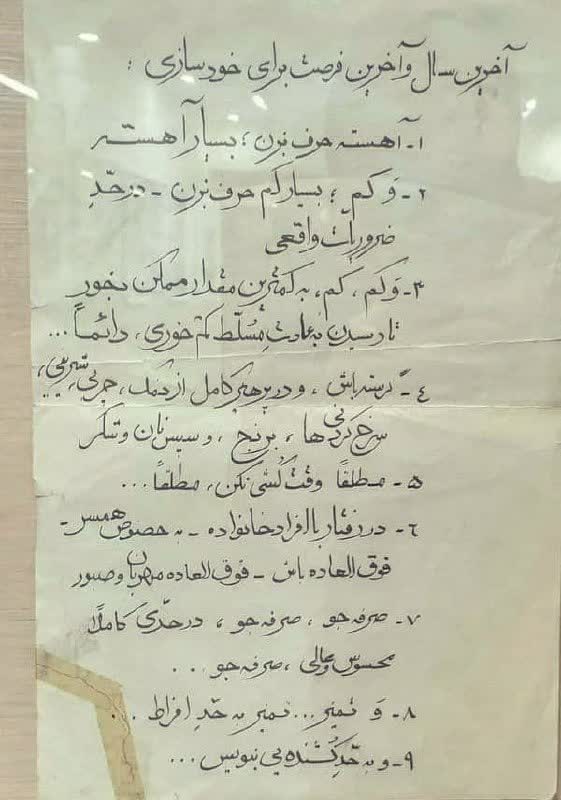 آخرین سال و آخرین فرصت برای خودسازی :
۱- آهسته حرف بزن ؛ بسیار آهسته
۲- وَ کم ؛ بسیار کم حرف بزن - در حدِّ
ضروریّات واقعی
۳- وَ کم ، کم ، به کمترین مقدار ممکن بخور
تا رسیدن به عادتِ مُسلّط کم خوری، دائماً ...
٤- گرسنه باش ، و در پرهیز کامل از نمک، چربی، شیرینی،
سرخ کردنی ها ، برنج ، و سپس نان و شکر
۵- مطلقاً وقت کُشی نکن، مطلقاً ...
٦- در رفتار با افراد خانواده - به خصوص همسر -
فوق العاده باش - فوق العاده مهربان و صبور
۷- صرفه جو ، صرفه جو ، در حدّی کاملاً
محسوس و عالی ، صرفه جو ...
۸- وَ تمیز ... تمیز به حدِ افراط ...
۹- و به حدِّ کُشنده یی بنویس ...